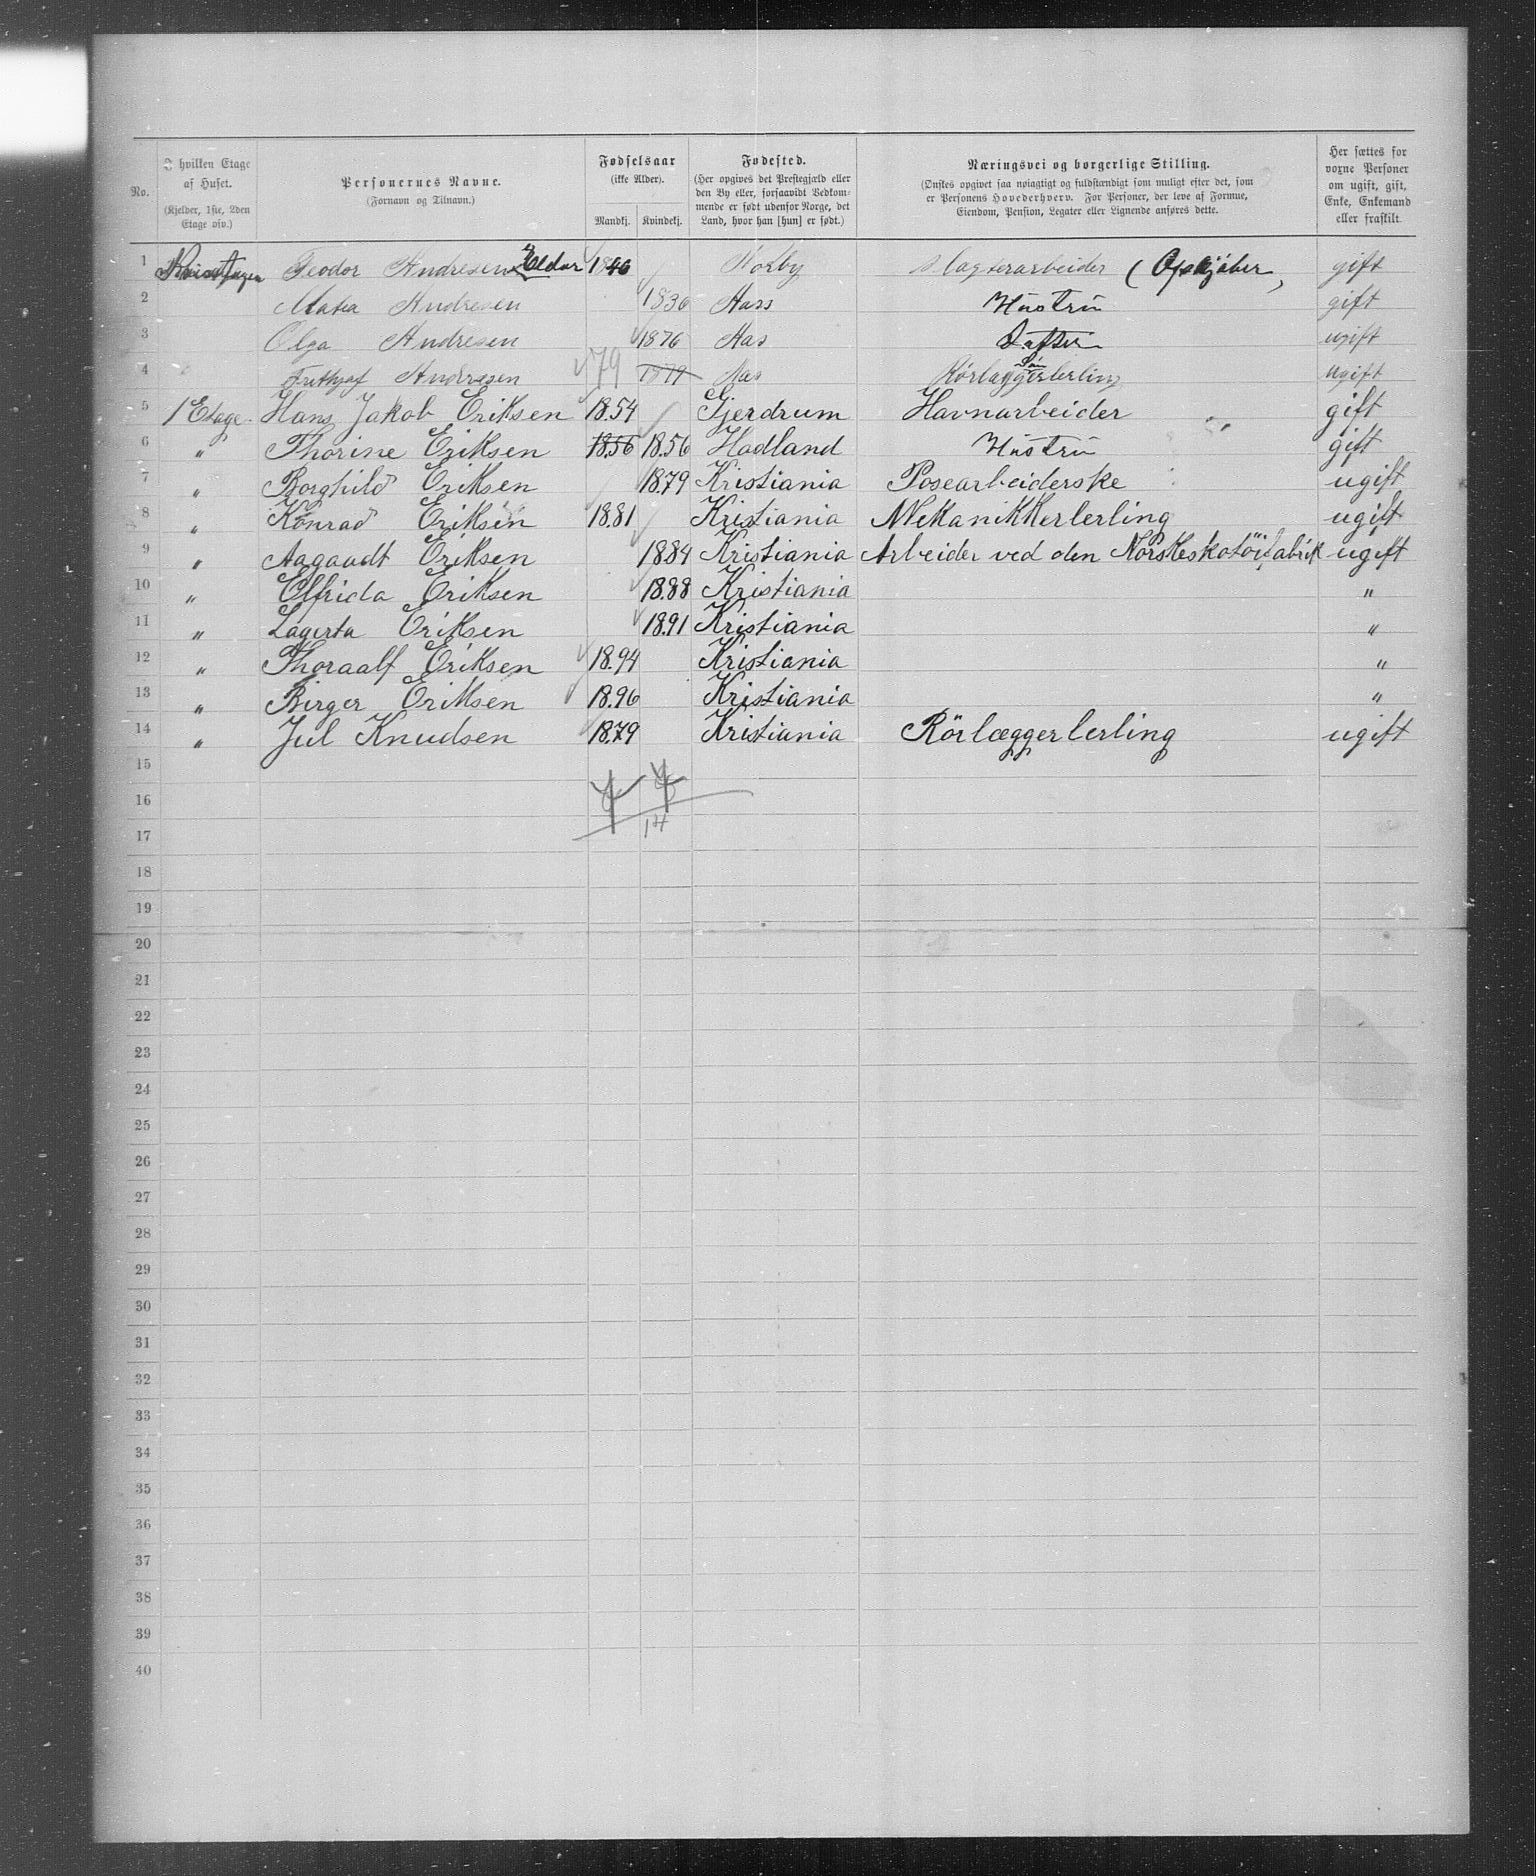 No. I hvilken Etage af Huset. (Kjelder, 1ste, 2den Etage osv.) Personernes Navne. (Fornavn og Tilnavn.) Fødselsaar (ikke Alder). Mandkj. Kvindekj. Fødested. (Her opgives det Prestegjæld eller den By eller, forsaavidt Vedkommende er født udenfor Norge, det Land, hvor han [hun] er født.) Næringsvei og borgerlige Stilling. (Ønskes opgivet saa nøiagtigt og fuldstændigt som muligt efter det, som er Personens Hovederhverv. For Personer, der leve af Formue, Eiendom, Pension, Legater eller Lignende anføres dette. Her sættes for voxne Personer om ugift, gift, Enke, Enkemand eller fraskilt.
1 Teodor Andresen 1846 Norby Slagterarbeider (Opkjøber) gift
2 Andresen 1836 Aars Hustru gift
3 Olga Andresen 1876 Aas Datter ugift
4 Frithjof Andresen 79 1879 Aas Søn Rørlæggerlerling ugift
5 1 Etage. Hans Jakob Eriksen 18.54 Gjerdrum Havnarbeider gift
6 " Thorine Eriksen 18.56 18.56 Hadland Hustru gift
7 " Borghild Eriksen 18.79 Kristiania Posearbeiderske ugift
8 " Konrad Eriksen 18.81 Kristiania Mekanikkerlerling ugift
9 " Aagaudt Eriksen 18.84 Kristiania Arbeider ved den Norskeskotöifabrik ugift
10 " Elfrida Eriksen 18.88 Kristiania "
11 " Lagerta Eriksen 18.91 Kristiania "
12 " Thoraalf Eriksen 18.94 Kristiania "
13 " Birger Eriksen 18.96 Kristiania "
14 " Jul Knudsen 18.79 Kristiania Rörlæggerlerling ugift
15
16
17 14
18
19
20
21
22
23
24
25
26
27
28
29
30
31
32
33
34
35
36
37
38
39
40